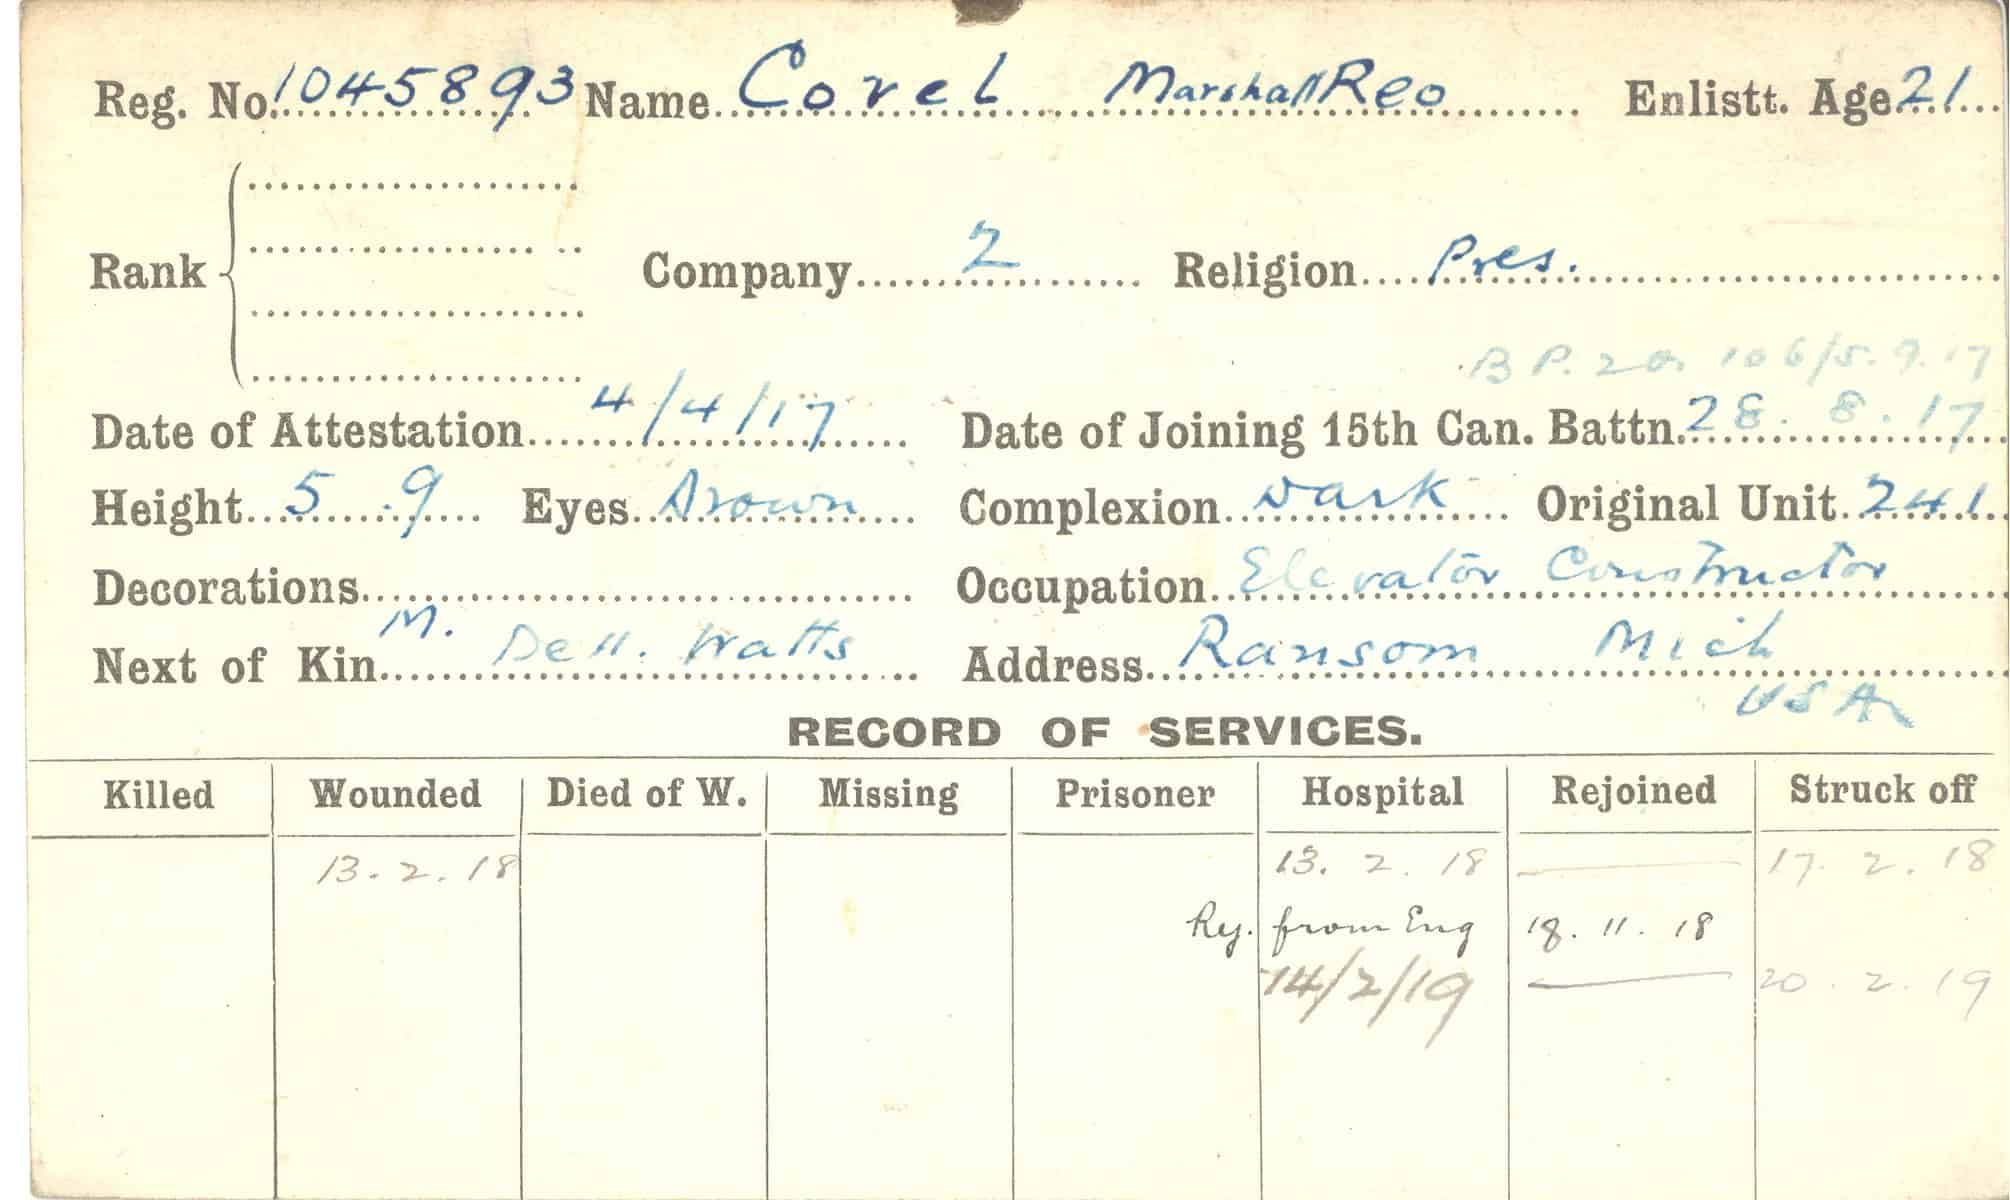 Reg. No. 1045893 Name Corel Marshall Reo Enlistt. Age 21
Rank Company 2 Religion Pres.
B P. 20. 106/5.9.17
Date of Attestation 4/4/17 Date of Joining 15th Can. Battn. 28. 8. 17
Height 5.9 Eyes Brown Complexion Dark Original Unit. 241
Decorations Occupation Elevator Constructor
Next of Kin M. Dell. Watts Address Ransom Mich
USA
RECORD OF SERVICES.
Killed Wounded Died of W. Missing Prisoner Hospital Rejoined Struck off
13. 2. 18 13. 2. 18 17. 2. 18
from Eng 18. 11. 18
14/2/19 20. 2. 19